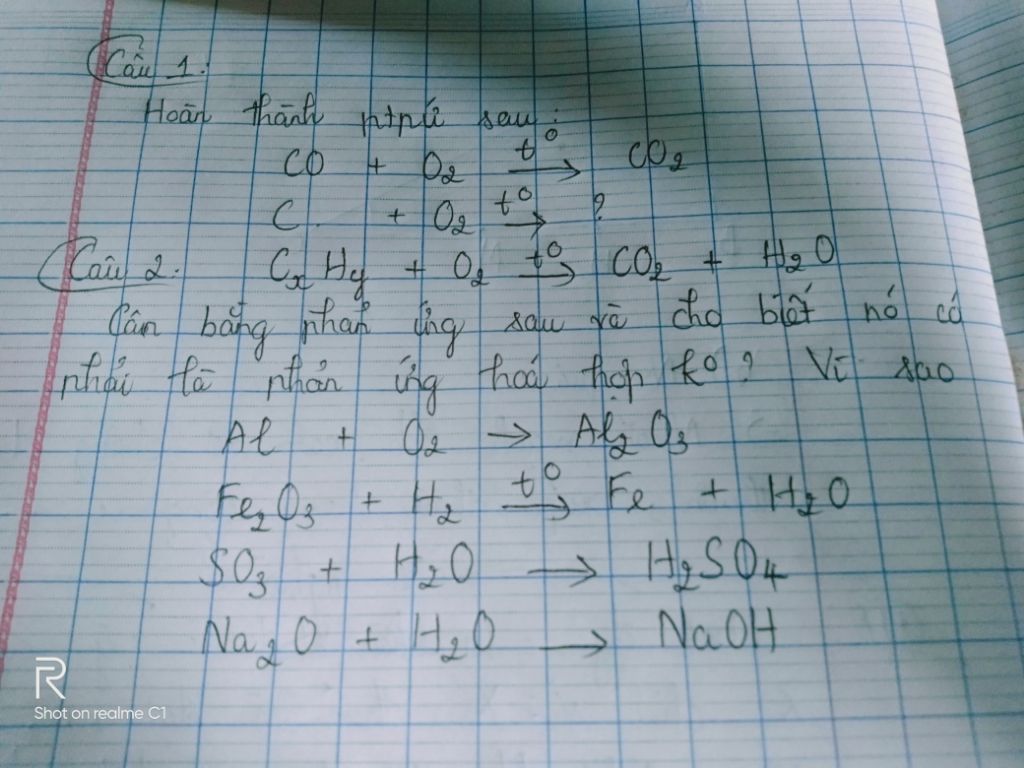 Câu 1:
Hoàn thành ptpứ sau:
CO + O₂ t⁰→ CO₂
C + O₂ t⁰→ ?
CₓHy + O₂ t⁰→ CO₂ + H₂O
Câu 2.
Cân bằng phản ứng sau và cho biết nó có
phải là phản ứng hoá hợp k⁰? Vì sao
Al + O₂ → Al₂O₃
Fe₂O₃ + H₂ t⁰→ Fe + H₂O
SO₃ + H₂O → H₂SO₄
Na₂O + H₂O → NaOH
R
Shot on realme C1